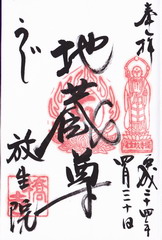 奉拝
平成二十四年四月三十日
地蔵尊
うじ
放生院